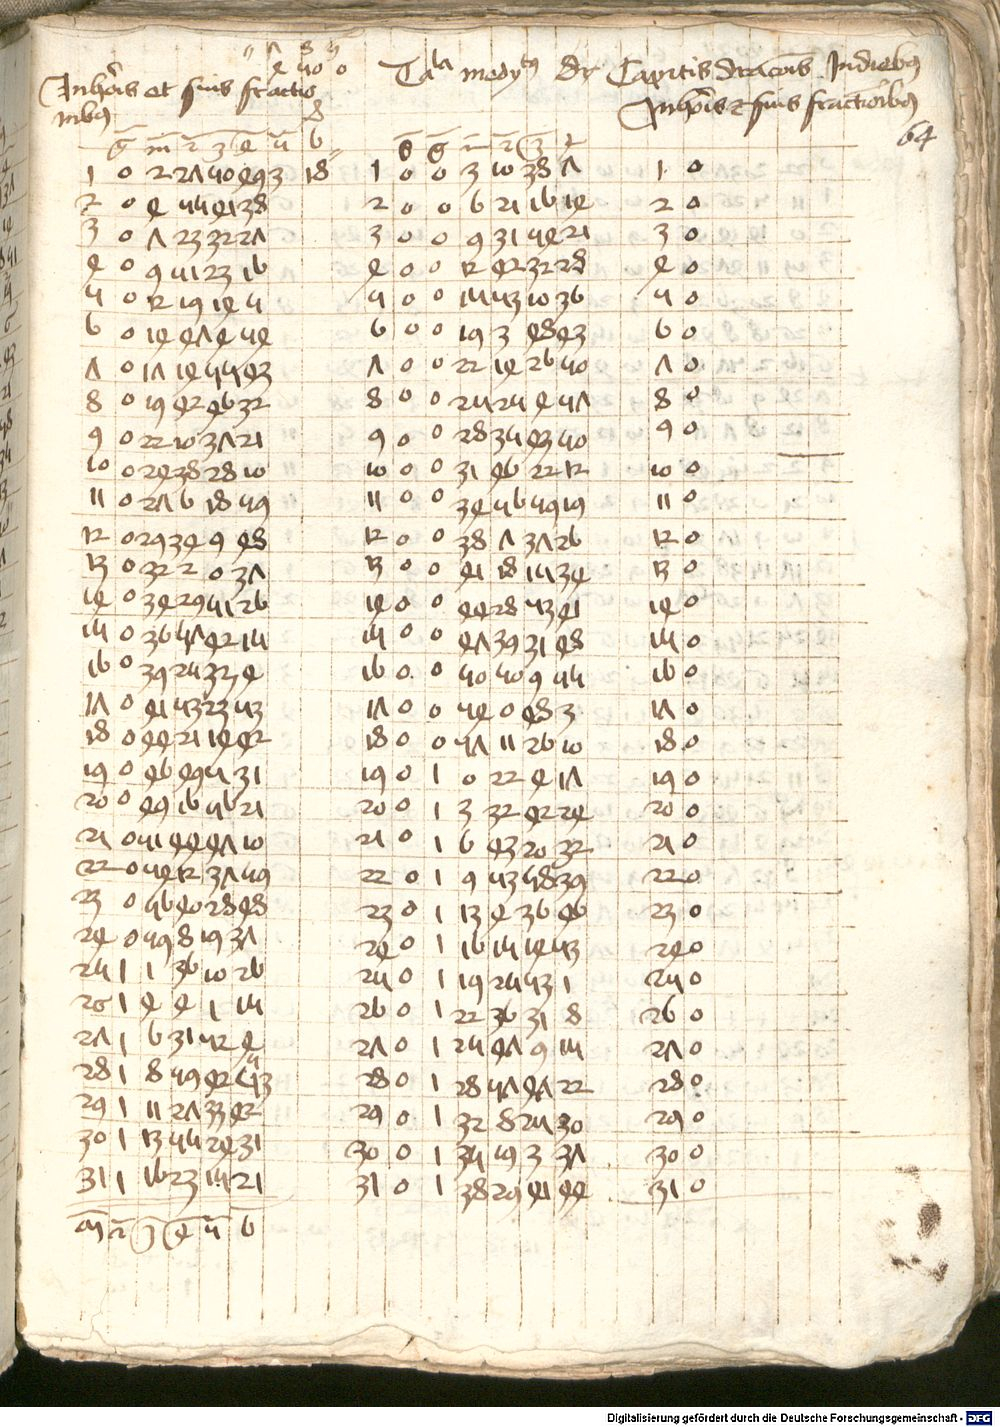 7 8 5
4 50 0
In horis et suis fractio
nibus
8
Tabula medij motus Capitis draconis In diebus
In horis et suis fractionibus
64
g m 2 3 4 5 6
g g m 2 3 4
1 0 2 27 50 49 3 18 1 0 0 3 10 38 7 1 0
2 0 4 55 41 38 2 0 0 6 21 16 14 2 0
3 0 7 23 32 27 3 0 0 9 31 54 21 3 0
4 0 9 51 23 16 4 0 0 12 42 32 28 4 0
5 0 12 19 14 5 5 0 0 15 53 10 36 5 0
6 0 14 47 4 54 6 0 0 19 3 48 43 6 0
7 0 17 14 55 43 7 0 0 22 14 26 50 7 0
8 0 19 42 46 32 8 0 0 25 25 4 57 8 0
9 0 22 10 37 21 9 0 0 28 35 43 50 9 0
10 0 24 38 28 10 10 0 0 31 46 22 12 10 0
11 0 27 6 18 59 11 0 0 34 56 59 19 11 0
12 0 29 34 9 48 12 0 0 38 7 37 26 12 0
13 0 32 2 0 37 13 0 0 41 18 15 34 13 0
14 0 34 29 51 26 14 0 0 44 28 53 41 14 0
15 0 36 57 42 15 15 0 0 47 39 31 48 15 0
16 0 39 25 33 4 16 0 0 50 50 9 55 16 0
17 0 41 53 23 53 17 0 0 54 0 48 3 17 0
18 0 44 21 14 42 18 0 0 57 11 26 10 18 0
19 0 46 49 5 31 19 0 1 0 22 4 17 19 0
20 0 49 16 56 21 20 0 1 3 32 42 24 20 0
21 0 51 44 47 10 21 0 1 6 43 20 32 21 0
22 0 54 12 37 59 22 0 1 9 53 58 39 22 0
23 0 56 40 28 48 23 0 1 13 4 36 46 23 0
24 0 59 8 19 37 24 0 1 16 15 14 53 24 0
25 1 1 36 10 26 25 0 1 19 25 53 1 25 0
26 1 4 4 1 15 26 0 1 22 36 31 8 26 0
27 1 6 31 52 4 27 0 1 25 47 9 15 27 0
28 1 8 59 42 53 28 0 1 28 57 47 22 28 0
29 1 11 27 33 42 29 0 1 32 8 25 30 29 0
30 1 13 55 24 31 30 0 1 35 19 3 37 30 0
31 1 16 23 15 21 31 0 1 38 29 41 44 31 0
m 2 3 4 5 6
Digitalisierung gefördert durch die Deutsche Forschungsgemeinschaft - DFG